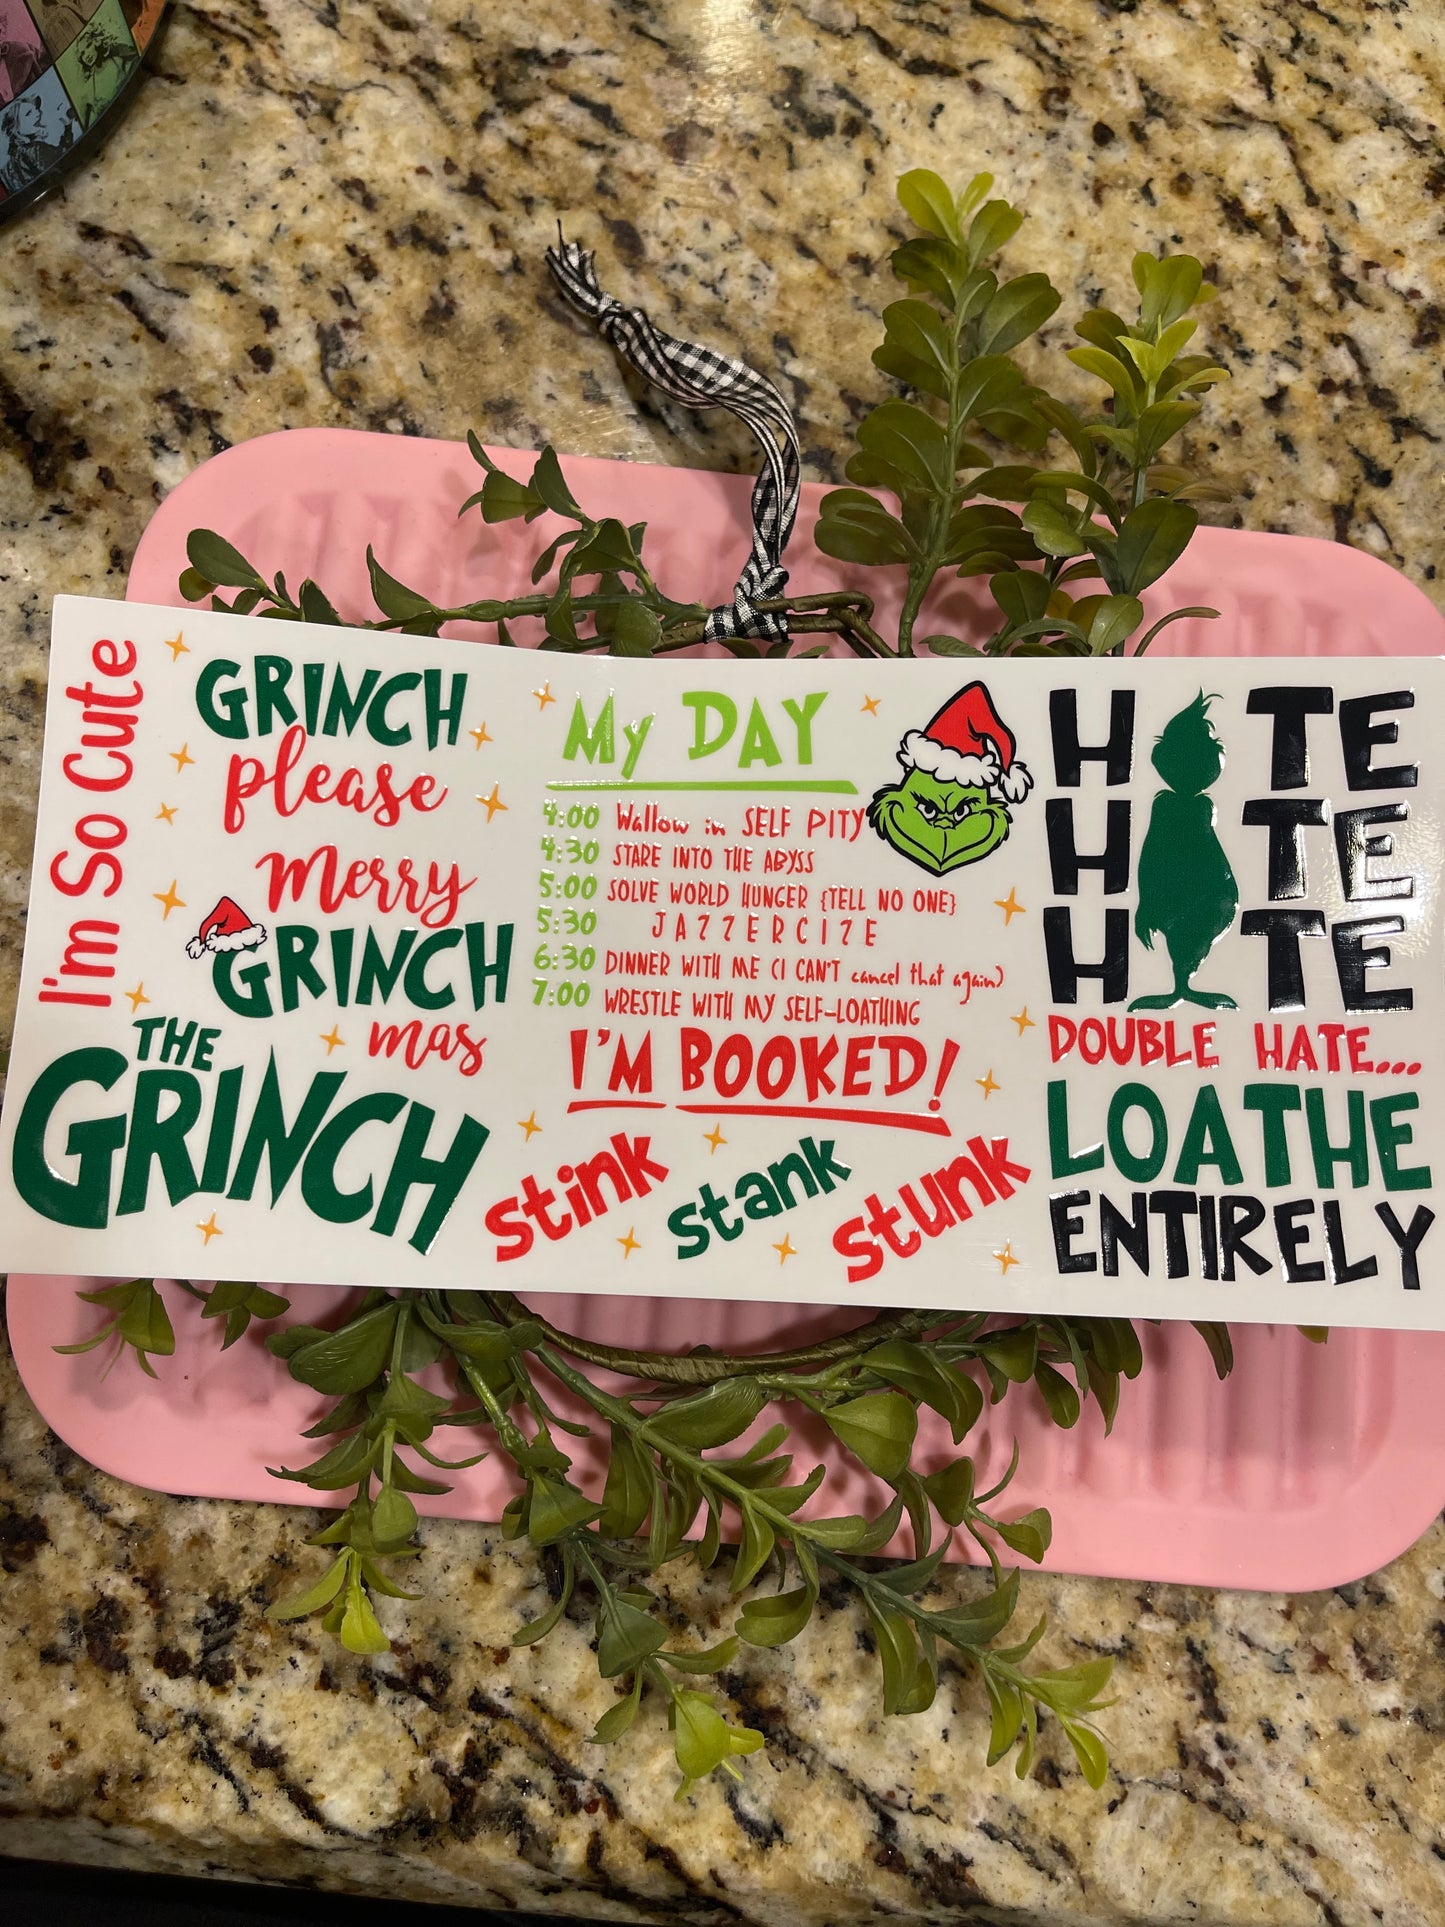 I'm So Cute
GRINCH
please
Merry
GRINCH
mas
THE
GRINCH
My DAY
4:00 Wallow in SELF PITY
4:30 STARE INTO THE ABYSS
5:00 SOLVE WORLD HUNGER {TELL NO ONE}
5:30 JAZZERCIZE
6:30 DINNER WITH ME (I CAN'T cancel that again)
7:00 WRESTLE WITH MY SELF-LOATHING
I'M BOOKED!
Stink
Stank
Stunk
H TE
H TE
H TE
DOUBLE HATE...
LOATHE
ENTIRELY